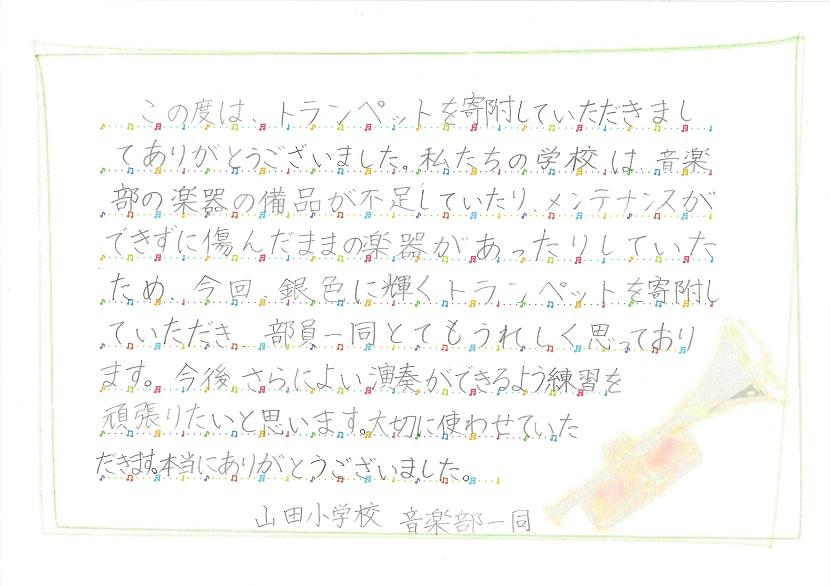 この度は、トランペットを寄附していただきまし
てありがとうございました。私たちの学校は、音楽
部の楽器の備品が不足していたり、メンテナンスが
できずに傷んだままの楽器があったりしていた
ため、今回、銀色に輝くトランペットを寄附し
ていただき、部員一同とてもうれしく思っており
ます。今後、さらによい演奏ができるよう練習を
頑張りたいと思います。大切に使わせていた
だきます。本当にありがとうございました。
山田小学校 音楽部一同